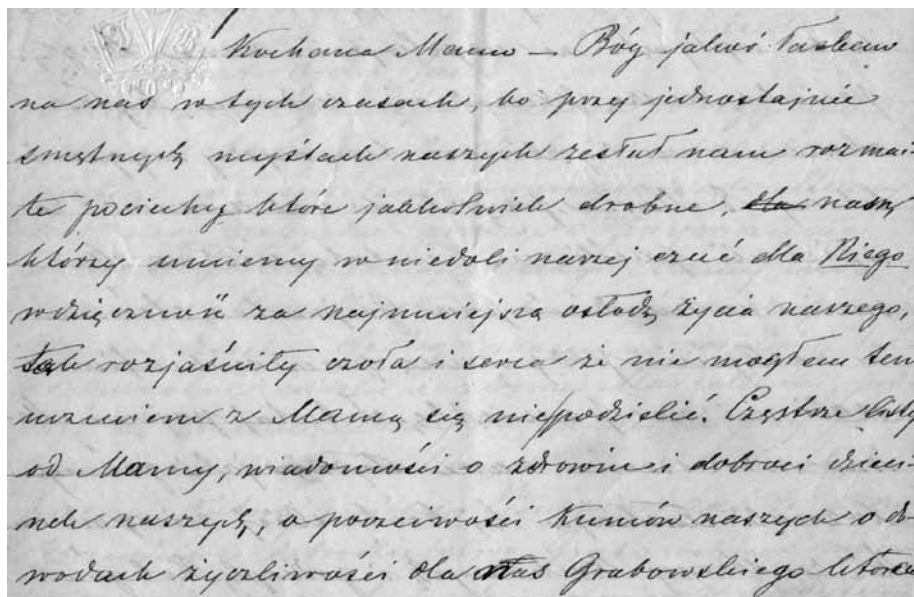 Kochana Mamo — Bóg jakoś łaskaw
na nas w tych czasach, bo przy jednostajnie
smętnych myślach naszych zesłał nam rozmai-
te pociechy, które jakkolwiek drobne, dla nas,
którzy umiemy w niedoli naszej czuć dla Niego
wdzięczność za najmniejszą osłodę życia naszego,
tak rozjaśniły czoła i serca że nie mogłem tem
uczuciem z Mamą się niepodzielić. Częstsze listy
od Mamy, wiadomości o zdrowiu i dobroci dzieci-
nek naszych, o poczciwości Kumów naszych o do-
wodach życzliwości dla nas Grabowskiego które